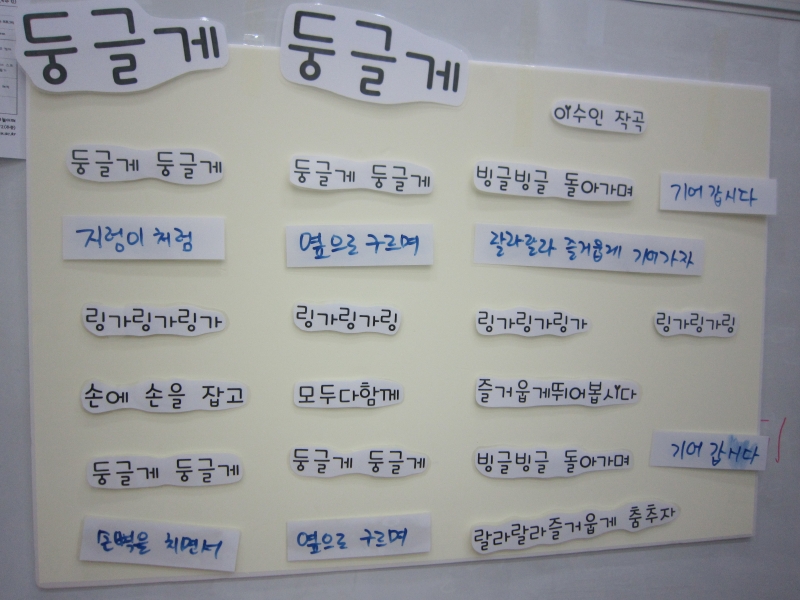 둥글게 둥글게
이수인 작곡
둥글게 둥글게 둥글게 둥글게 빙글빙글 돌아가며 기어 갑시다
지렁이 처럼 옆으로 구르며 랄라랄라 즐거웁게 기어가자
링가링가링가 링가링가링 링가링가링가 링가링가링
손에 손을 잡고 모두다함께 즐거웁게뛰어봅시다
둥글게 둥글게 둥글게 둥글게 빙글빙글 돌아가며 기어 갑시다
손뼉을 치면서 옆으로 구르며 랄라랄라즐거웁게 춤추자